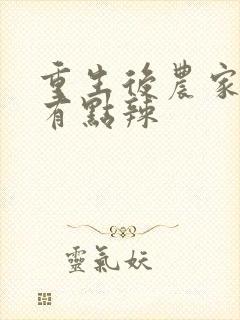 重生後農家
有點辣
靈氣妖